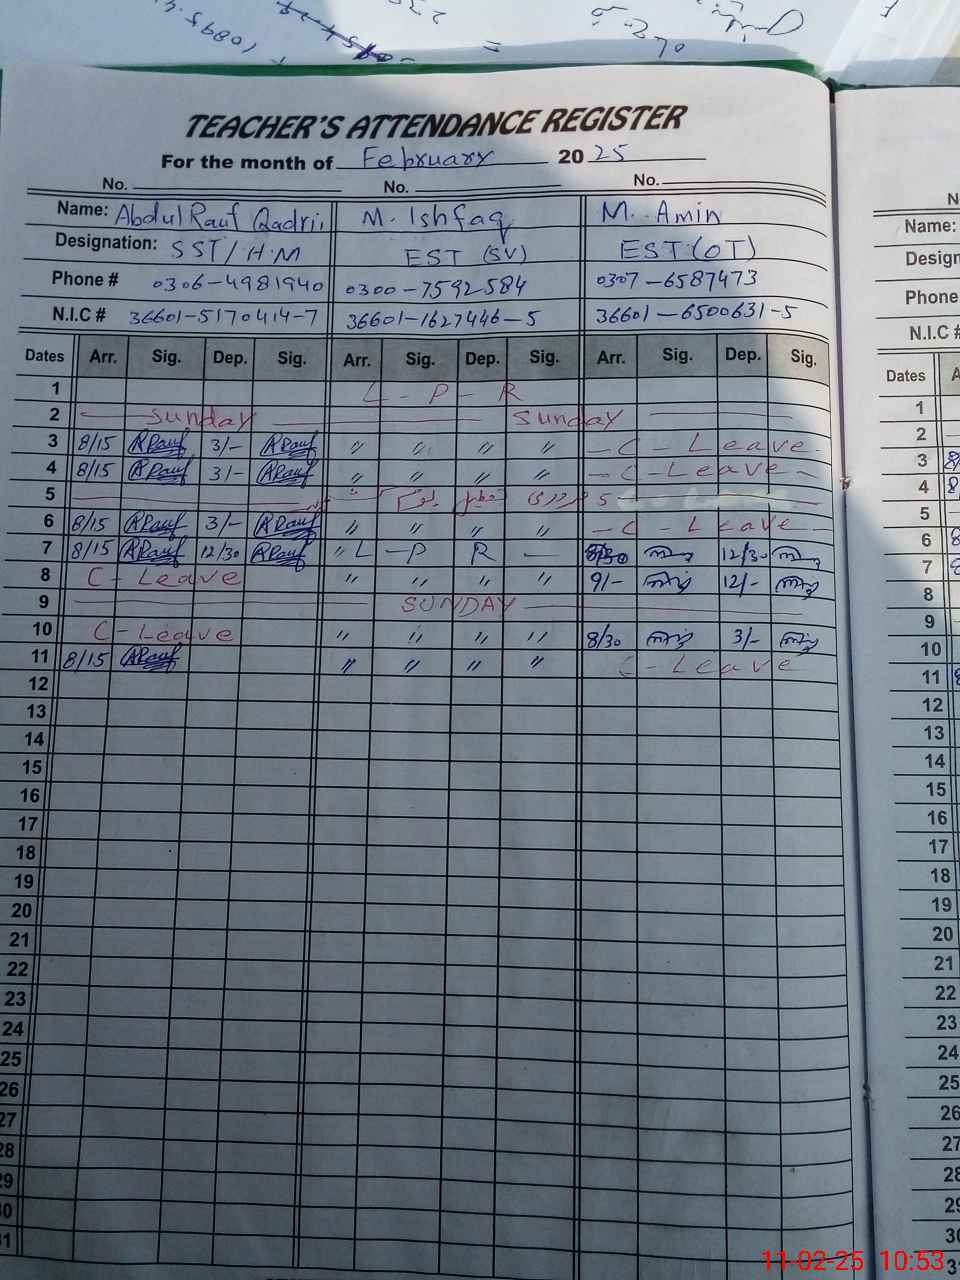 TEACHER'S ATTENDANCE REGISTER
For the month of February 2025
No. No. No.
Name: Abdul Rauf Qadrii M. Ishfaq M. Amin
Designation: SST/H.M EST (SV) EST (OT)
Phone # 0306-4981940 0300-7592584 0307-6587473
N.I.C # 36601-5170414-7 36601-1627446-5 36601-6500631-5
Dates Arr. Sig. Dep. Sig. Arr. Sig. Dep. Sig. Arr. Sig. Dep. Sig.
1 L - P - R
2 Sunday Sunday
3 8/15 ARauf 3/- ARauf " " " " C - Leave
4 8/15 ARauf 3/- ARauf " " " " C - Leave
5 5 فروری تعطیل
6 8/15 ARauf 3/- ARauf " " " " C - Leave
7 8/15 ARauf 12/30 ARauf " L - P R - 8/30 12/30
8 C - Leave " " " " 9/- 12/-
9 SUNDAY
10 C - Leave " " " " 8/30 3/-
11 8/15 ARauf " " " " C - Leave
12
13
14
15
16
17
18
19
20
21
22
23
24
25
26
27
28
29
30
31
Name:
Design
Phone
N.I.C #
Dates A
1
2
3
4
5
6
7
8
9
10
11
12
13
14
15
16
17
18
19
20
21
22
23
24
25
26
27
28
29
30
11-02-25 10:53